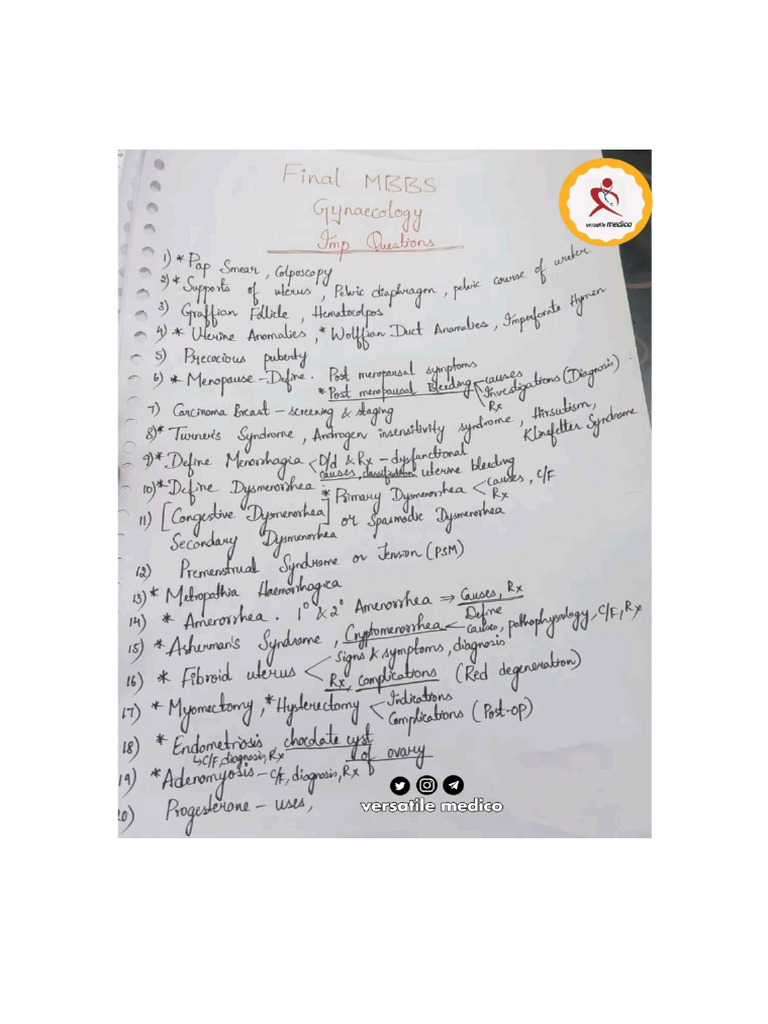 Final MBBS
Gynaecology
Imp Questions
versatile medico
1) * Pap Smear, Colposcopy
2) * Supports of uterus, Pelvic diaphragm, pelvic course of ureter
3) Graffian Follicle, Hematocolpos
4) * Uterine Anomalies, * Wolffian Duct Anomalies, Imperforate Hymen
5) Precocious puberty
6) * Menopause - Define. Post menopausal symptoms
* Post menopausal Bleeding causes
Investigations (Diagnosis)
Rx
7) Carcinoma Breast - screening & staging
8) * Turner's Syndrome, Androgen insensitivity syndrome, Hirsutism,
Klinefelter Syndrome
9) * Define Menorrhagia D/d & Rx - dysfunctional
causes, classification uterine bleeding
10) * Define Dysmenorrhea : * Primary Dysmenorrhea causes, C/F
Rx
11) [Congestive Dysmenorrhea] or Spasmodic Dysmenorrhea
Secondary Dysmenorrhea
12) Premenstrual Syndrome or Tension (PSM)
13) * Metropathia Haemorrhagica
14) * Amenorrhea. 1° & 2° Amenorrhea ⇒ Causes, Rx
15) * Asherman's Syndrome, Cryptomenorrhea Define
causes, pathophysiology, C/F, Rx
16) * Fibroid uterus Signs & symptoms, diagnosis
Rx, complications (Red degeneration)
17) * Myomectomy, * Hysterectomy Indications
Complications (Post-op)
18) * Endometriosis chocolate cyst
↳ C/F, diagnosis, Rx of ovary
19) * Adenomyosis - C/F, diagnosis, Rx
20) Progesterone - uses,
versatile medico